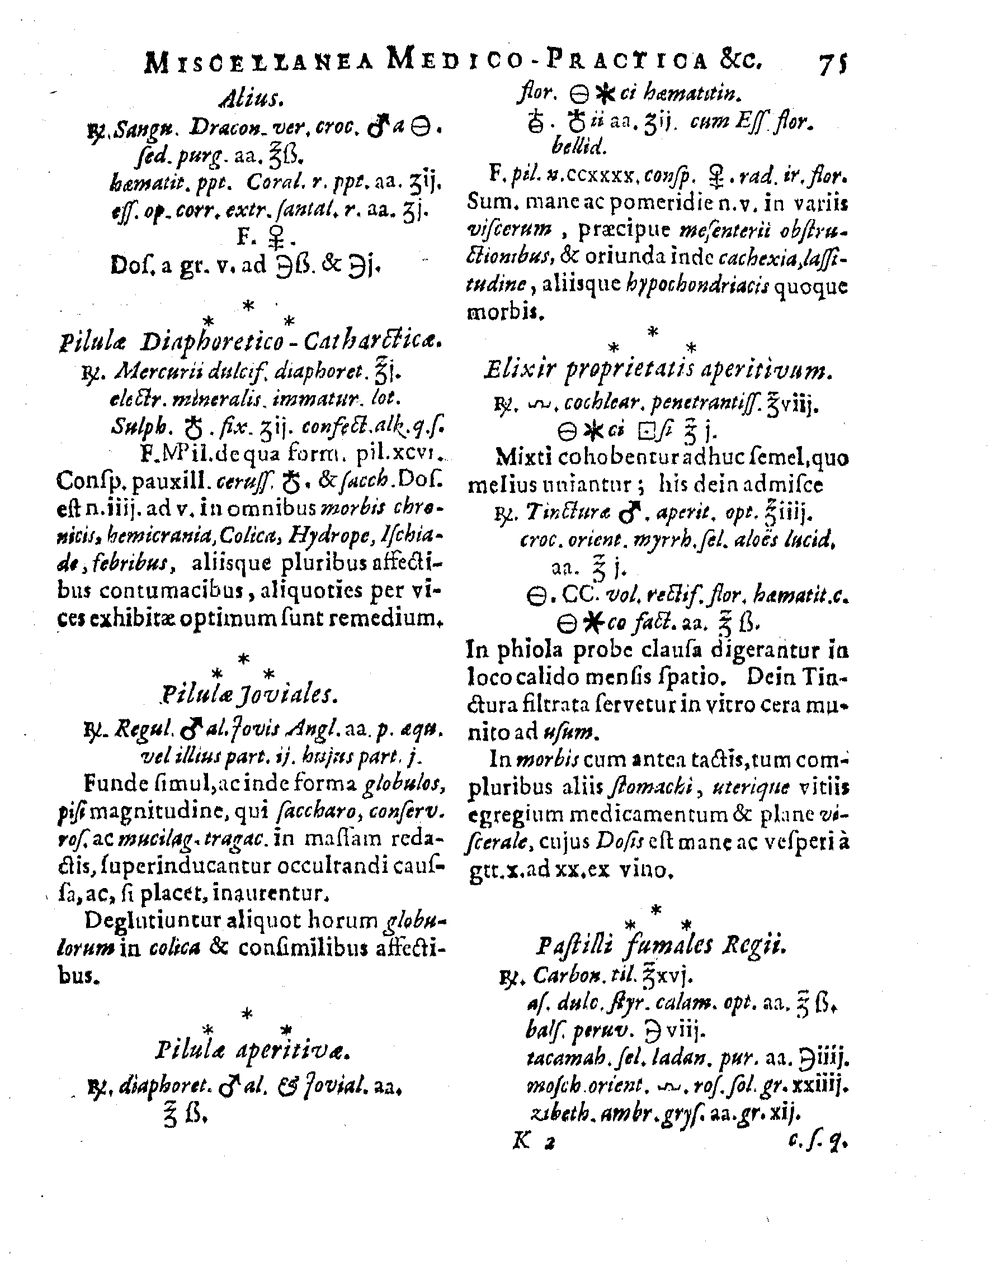 MISCELLANEA MEDICO-PRACTICA &c. 75
Alius.
℞. Sangu. Dracon. ver. croc. ♂ a 🜔.
ſed. purg. aa. ℥ß.
hæmatit. ppt. Coral. r. ppt. aa. ʒij.
eſſ. op. corr. extr. ſantal. r. aa. ʒj.
F. ♀.
Doſ. a gr. v. ad ℈ß. & ℈j.
*
* *
Pilulæ Diaphoretico-Catharcticæ.
℞. Mercurii dulciſ. diaphoret. ℥j.
electr. mineralis. immatur. lot.
Sulph. ♁. fix. ʒij. confect. alk. q. ſ.
F. M Pil. de qua form. pil. xcvi.
Conſp. pauxill. ceruſſ. ♁. & ſacch. Doſ.
eſt n. iiij. ad v. in omnibus morbis chro-
nicis, hemicrania, Colica, Hydrope, Iſchia-
de, febribus, aliisque pluribus affecti-
bus contumacibus, aliquoties per vi-
ces exhibitæ optimum ſunt remedium.
*
* *
Pilulæ Joviales.
℞. Regul. ♂ al. Jovis Angl. aa. p. æqu.
vel illius part. ij. hujus part. j.
Funde ſimul, ac inde forma globulos,
piſi magnitudine, qui ſaccharo, conſerv.
roſ. ac mucilag. tragac. in maſſam reda-
ctis, ſuperinducantur occultandi cauſ-
ſa, ac, ſi placet, inaurentur.
Deglutiuntur aliquot horum globu-
lorum in colica & conſimilibus affecti-
bus.
*
* *
Pilulæ aperitivæ.
℞. diaphoret. ♂ al. & Jovial. aa.
℥ ß.
flor. 🜔 ✱ ci hæmatitin.
♁. ♁ ii aa. ʒij. cum Eſſ. flor.
bellid.
F. pil. n. ccxxxx. conſp. ♀. rad. ir. flor.
Sum. mane ac pomeridie n. v. in variis
viſcerum, præcipue meſenterii obſtru-
ctionibus, & oriunda inde cachexia, laſſi-
tudine, aliisque hypochondriacis quoque
morbis.
*
* *
Elixir proprietatis aperitivum.
℞. 〰. cochlear. penetrantiſſ. ℥viij.
🜔 ✱ ci ⊡ ſi ℥ j.
Mixti cohobentur adhuc ſemel, quo
melius uniantur; his dein admiſce
℞. Tincturæ ♂. aperit. opt. ℥iiij.
croc. orient. myrrh. ſel. aloës lucid.
aa. ℥ j.
🜔. CC. vol. rectiſ. flor. hæmatit. c.
🜔 ✱ co fact. aa. ℥ ß.
In phiola probe clauſa digerantur in
loco calido menſis ſpatio. Dein Tin-
ctura filtrata ſervetur in vitro cera mu-
nito ad uſum.
In morbis cum antea tactis, tum com-
pluribus aliis ſtomachi, uterique vitiis
egregium medicamentum & plane vi-
ſcerale, cujus Doſis eſt mane ac veſperi à
gtt. x. ad xx. ex vino.
*
* *
Paſtilli fumales Regii.
℞. Carbon. til. ℥xvj.
aſ. dulc. ſtyr. calam. opt. aa. ℥ ß.
balſ. peruv. ℈ viij.
tacamah. ſel. ladan. pur. aa. ℈iiij.
moſch. orient. 〰. roſ. ſol. gr. xxiiij.
zibeth. ambr. gryſ. aa. gr. xij.
K 2 c. ſ. q.